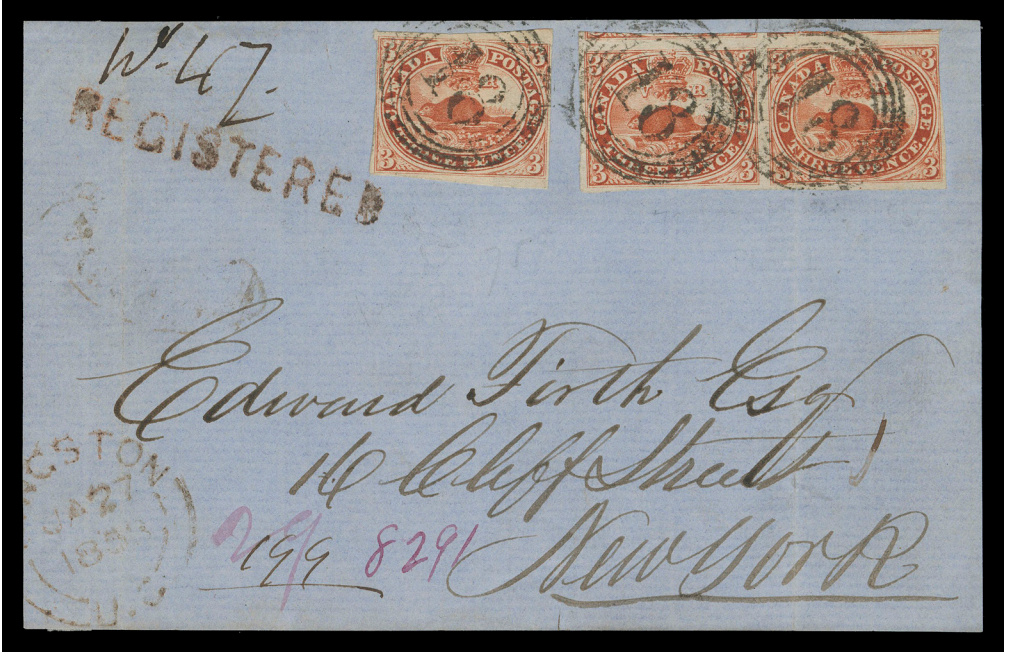 REGISTERED
3 3
CANADA POSTAGE
THREE PENCE
3 3
3 3
CANADA POSTAGE
V R
THREE PENCE
3 3
3
CANADA POSTAGE
V
THREE PENCE
3 3
18
18
18
Edward Firth Esq
16 Cliff Street
New York
199 8291
GSTON
JA 27
U.C